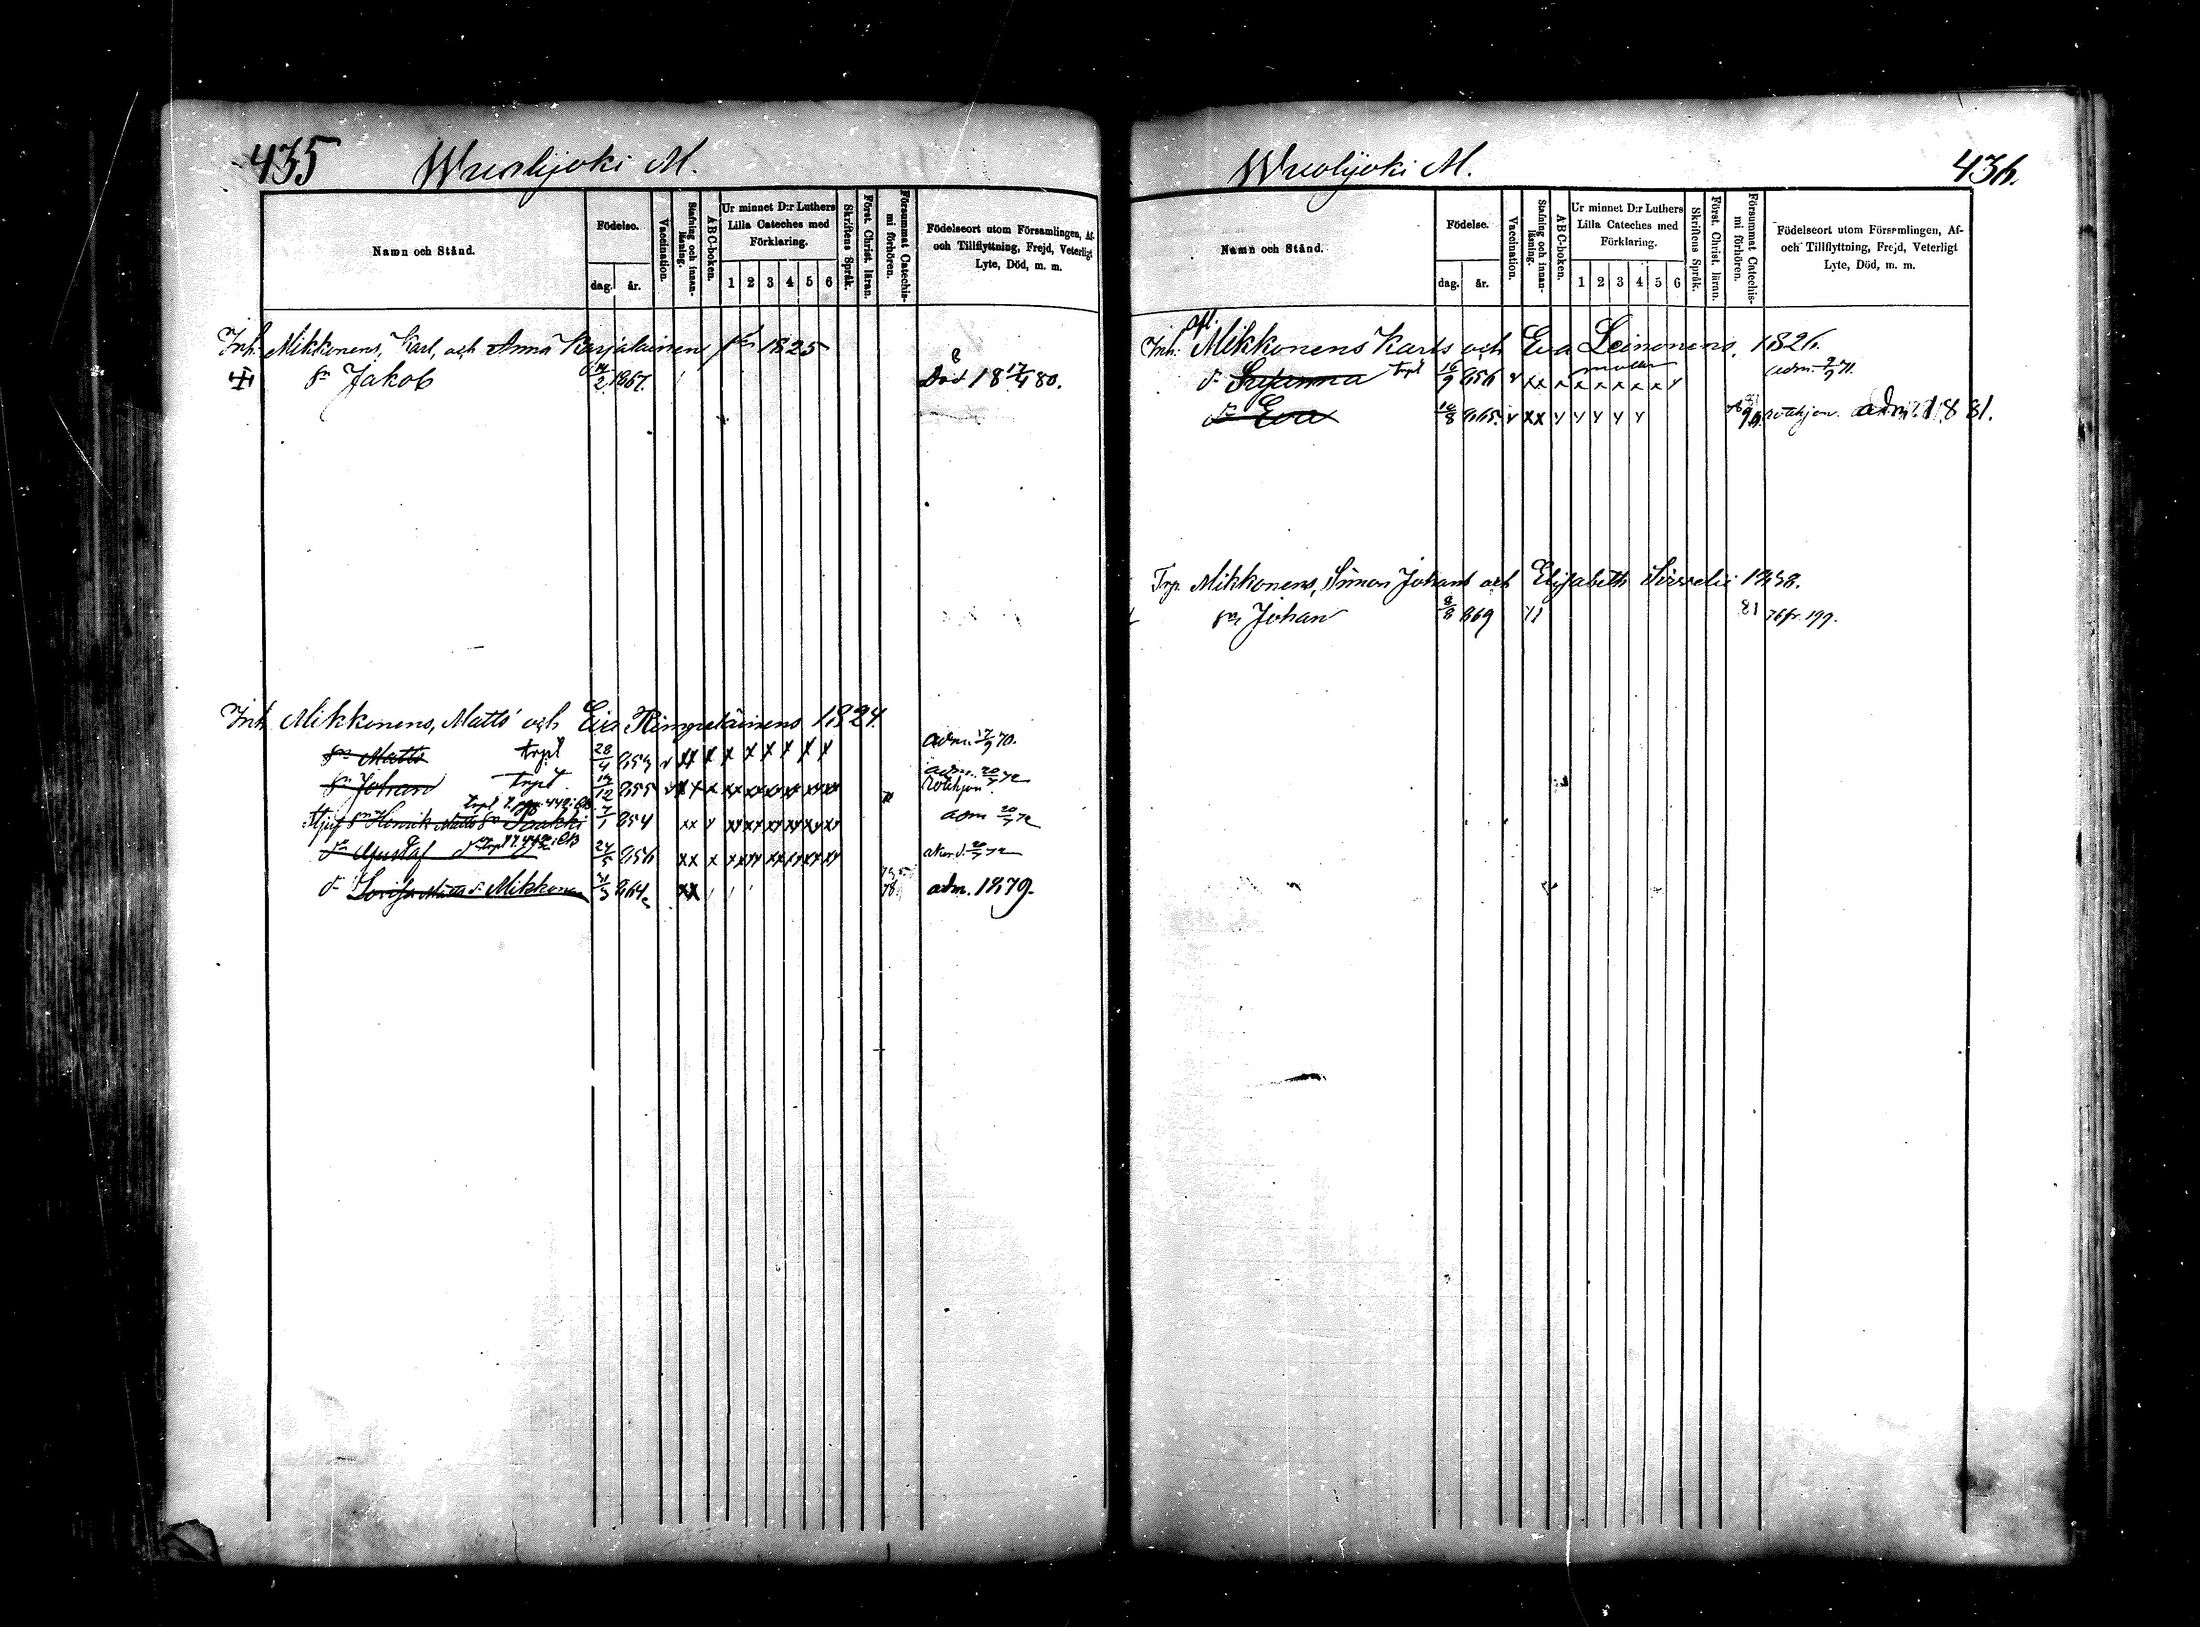 435 Wuolijoki M.
Namn och Stånd.
Födelse.
dag. år.
Vaccination.
Stafning och innan-läsning.
ABC-boken.
Ur minnet D:r Luthers
Lilla Cateches med
Förklaring.
1 2 3 4 5 6
Skriftens Språk.
Först. Christ. läran.
Försummat Catechis-
mi förhören.
Födelseort utom Församlingen, Af-
och Tillflyttning, Frejd, Veterligt
Lyte, Död, m. m.
Inh. Mikkonens, Karl, och Anna Karjalainen 1825
sn Jakob 14/2 1867. Död 18 17/4 80.
Inh. Mikkonens, Matts och Eva 1824
sn Matts trpl 28/4 854 xx x x x x x x x adm. 17/9 70.
sn Johan trpl 14/12 855 adm. 20/7 72
sn Henrik Matts sn 7/1 854 xx adm 20/7 72
sn Gustaf 24/5 856 xx x 20/7 72
dr Lovisa Matts dr Mikkonen 31/3 864 xx 78 adm. 1879.
Wuolijoki M. 436.
Namn och Stånd.
Födelse.
dag. år.
Vaccination.
Stafning och innan-läsning.
ABC-boken.
Ur minnet D:r Luthers
Lilla Cateches med
Förklaring.
1 2 3 4 5 6
Skriftens Språk.
Först. Christ. läran.
Försummat Catechis-
mi förhören.
Födelseort utom Församlingen, Af-
och Tillflyttning, Frejd, Veterligt
Lyte, Död, m. m.
Inh. afl. Mikkonens Karls och Eva Leinonens 1826.
dr Susanna trpl 16/9 856 v xx x x x x x x adm. 9/9 71.
dr Eva 10/8 865. v xx adm. 1881.
Trp. Mikkonens, Simon Johans och Elisabeth 1838.
sn Johan 8/8 869 81 76 fr. 199.